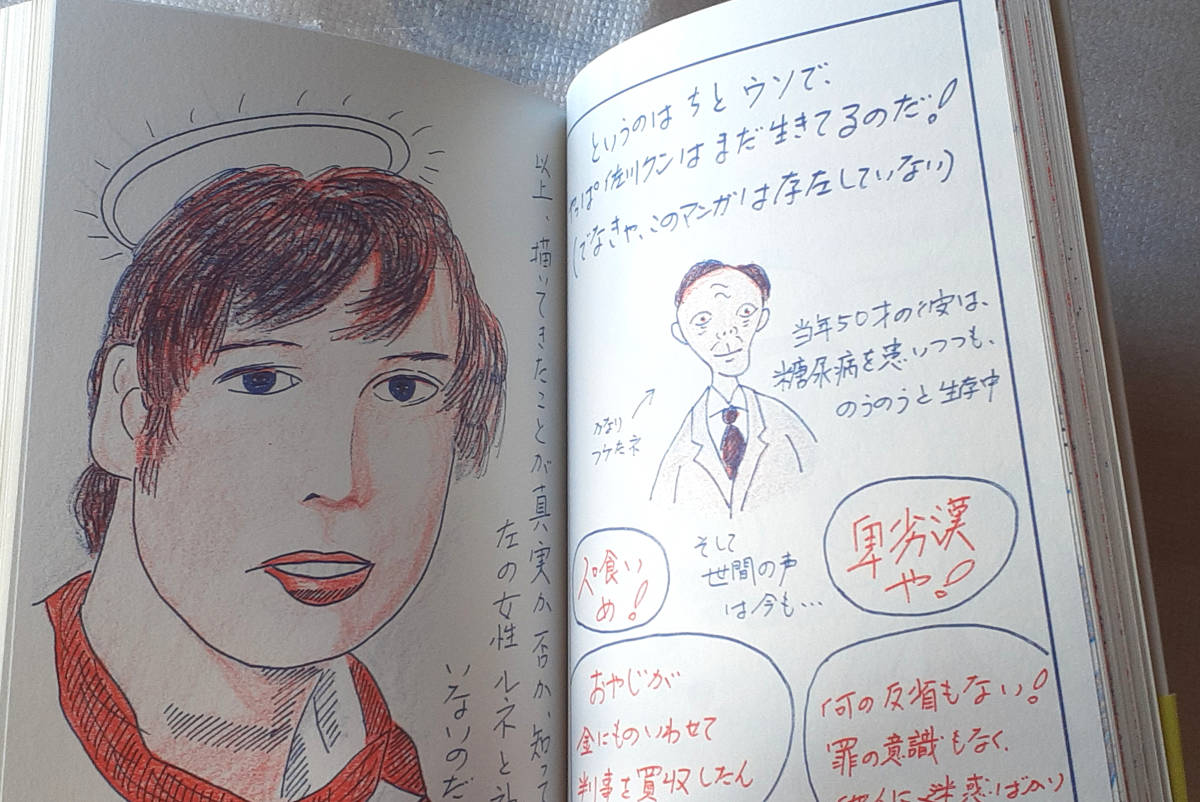 以上、描いてきたことが真実か否か、知って
左の女性 ルネと
いないのだ
というのは ちと ウソで、
やっぱ 佐川クンはまだ生きてるのだ!
(でなきゃ、このマンガは存在していない)
当年50才の彼は、
糖尿病を患いつつも、
のうのうと生存中
かなり
フケたネ
卑劣漢
や!
そして
世間の声
は今も…
人喰い
め!
何の反省もない!
罪の意識もなく、
迷惑ばかり
おやじが
金にものいわせて
判事を買収したん